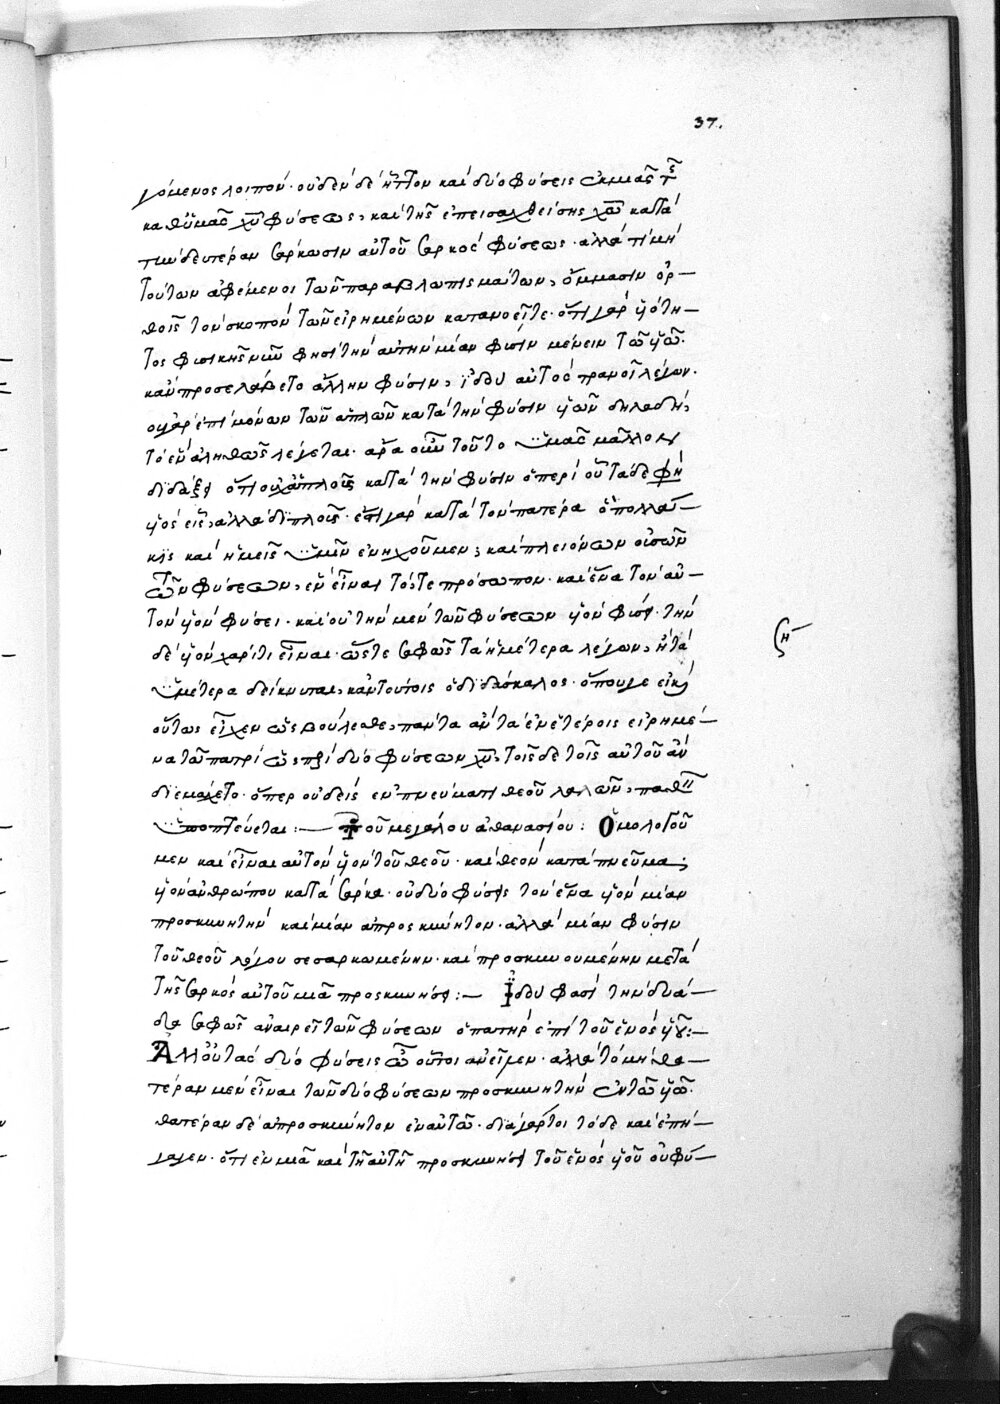 37.
γόμενος λοιπόν· οὐδὲν δὲ ἧττον καὶ δύο φύσεις ἐκ μιᾶς τῆς
καθ' ὑμᾶς χῦ φύσεως, καὶ τῆς ἐπεισαχθείσης χω κατὰ
τὴν δευτέραν σάρκωσιν αὐτοῦ σαρκὸς φύσεως· ἀλλά τι μὴ
τούτων ἀφέμενοι τῶν παραβλωπισμάτων, ὄμμασιν ὀρ-
θοῖς τὸν σκοπὸν τῶν εἰρημένων κατανοεῖτε· ὅτι γὰρ υἱότη-
τος φυσικῆς νῦν φησὶ τὴν αὐτὴν μίαν φύσιν μένειν τῶ υἱῶ·
κἂν προσελάβετο ἄλλην φύσιν, ἰδοὺ αὐτὸς τρανοῖ λέγων·
οὐ γὰρ ἐπὶ μόνων τῶν ἁπλῶν κατὰ τὴν φύσιν υἱῶν δηλαδή,
τὸ ἓν ἀληθῶς λέγεται· ἆρα οὖν τοῦτο ὑμᾶς μᾶλλον
διδάξει ὅτι οὐχ ἁπλοῖς κατὰ τὴν φύσιν ὅπερ οὗτάδε φὴ
υἱὸς εἷς, ἀλλὰ διπλοῖς· ἔστι γὰρ κατὰ τὸν πατέρα ὃ πολλά-
κις καὶ ἡμεῖς ὑμῖν ἐνηχοῦμεν, καὶ πλειόνων οὐσῶν
τῶν φύσεων, ἓν εἶναι τό, τε πρόσωπον· καὶ ἕνα τὸν αὐ-
τὸν υἱὸν φύσει· καὶ οὐ τὴν μὲν τῶν φύσεων υἱὸν φύσει· τὴν
δὲ υἱὸν χάριτι εἶναι· ὥστε σαφῶς τὰ ἡμέτερα λέγων, ἢ τὰ
ὑμέτερα δείκνυται, κἀν τούτοις ὁ διδάσκαλος· ὅπου γε εἰ καὶ
οὕτως εἶχεν ὡς βούλεσθε, πάντα ἂν τὰ ἐν ἑτέροις εἰρημέ-
να τῶ πατρὶ ὡς περὶ δύο φύσεων χῦ, τοῖς δὲ τοῖς αὐτοῦ ἀν
διεμάχετο· ὅπερ οὐδεὶς ἐν πνεύματι θεοῦ λαλῶν, παθεῖν
ὑποπτεύεται:— Τοῦ μεγάλου ἀθανασίου: Ὁμολογοῦ
μεν καὶ εἶναι αὐτὸν υἱὸν τοῦ θεοῦ· καὶ θεὸν κατὰ πνεῦμα,
υἱὸν ἀνθρώπου κατὰ σάρκα· οὐ δύο φύσεις τὸν ἕνα υἱὸν μίαν
προσκυνητὴν καὶ μίαν ἀπροσκύνητον· ἀλλὰ μίαν φύσιν
τοῦ θεοῦ λόγου σεσαρκωμένην· καὶ προσκυνουμένην μετὰ
τῆς σαρκὸς αὐτοῦ μιᾶ προσκυνήσει:— Ἰδοὺ φασὶ τὴν δυά-
δα σαφῶς ἀναιρεῖ τῶν φύσεων ὁ πατὴρ ἐπὶ τοῦ ἑνὸς υἱοῦ:—
Ἀλλ' οὐ τὰς δύο φύσεις ὦ οὗτοι ἀνεῖλεν· ἀλλὰ τὸ μὴ θα-
τέραν μὲν εἶναι τῶν δύο φύσεων προσκυνητὴν ἐν τῶ υἱῶ·
θατέραν δὲ ἀπροσκύνητον ἐν αὐτῶ· διὰ γάρτοι τόδε καὶ ἐπή-
γαγεν· ὅτι ἐν μιᾶ καὶ τῆ αὐτῆ προσκυνήσει τοῦ ἑνὸς υἱοῦ οὐ φύ-
ζή